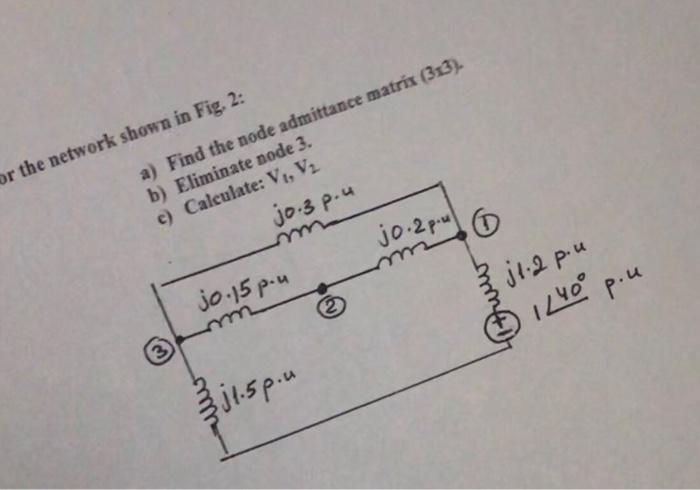 or the network shown in Fig. 2:
a) Find the node admittance matrix (3x3).
b) Eliminate node 3.
c) Calculate: V1, V2
j0.3 p.u
j0.2 p.u
①
j0.15 p.u
②
j1.2 p.u
1∠40° p.u
③
j1.5 p.u